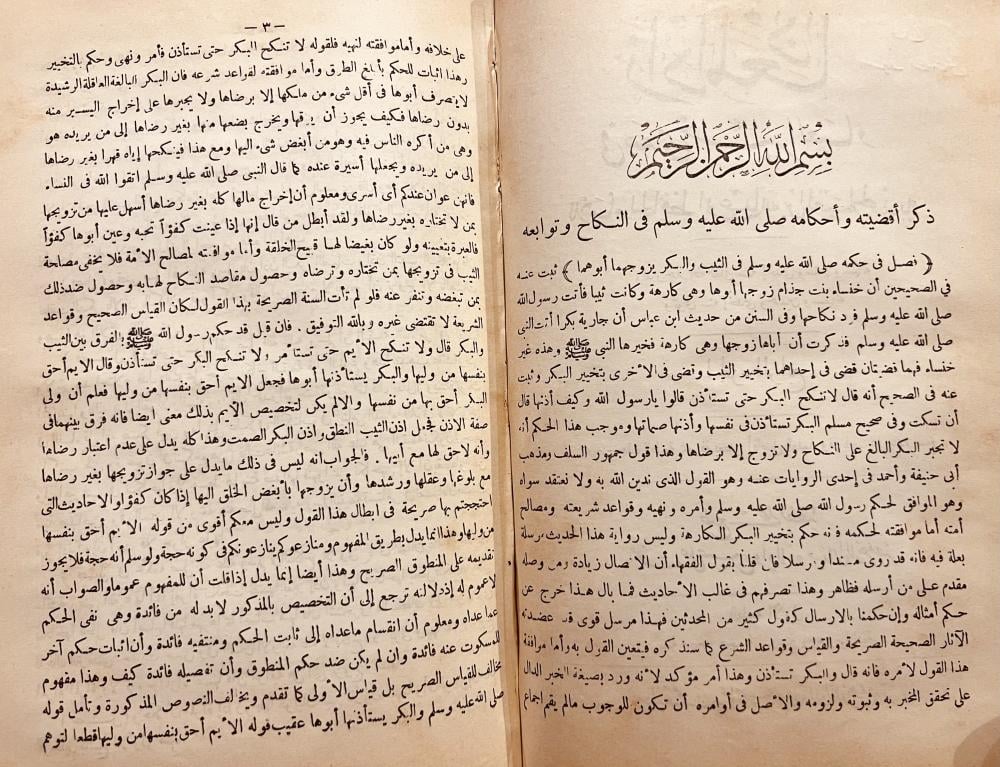 بسم الله الرحمن الرحيم
ذكر أقضيته وأحكامه صلى الله عليه وسلم فى النكاح وتوابعه
﴿ فصل فى حكمه صلى الله عليه وسلم فى الثيب والبكر يزوجهما أبوهما ﴾ ثبت عنه
فى الصحيحين أن خنساء بنت جذام زوجها أبوها وهى كارهة وكانت ثيبا فأتت رسول الله
صلى الله عليه وسلم فرد نكاحها وفى السنن من حديث ابن عباس أن جارية بكرا أتت النبى
صلى الله عليه وسلم فذكرت أن أباها زوجها وهى كارهة فخيرها النبى ﷺ وهذه غير
خنساء فهما قضيتان قضى فى إحداهما بتخيير الثيب وقضى فى الأخرى بتخيير البكر وثبت
عنه فى الصحيح أنه قال لا تنكح البكر حتى تستأذن قالوا يارسول الله وكيف أذنها قال
أن تسكت وفى صحيح مسلم البكر تستأذن فى نفسها وأذنها صماتها وموجب هذا الحكم أنه
لا تجبر البكر البالغ على النكاح ولا تزوج إلا برضاها وهذا قول جمهور السلف ومذهب
أبى حنيفة وأحمد فى إحدى الروايات عنه وهو القول الذى ندين الله به ولا نعتقد سواه
وهو الموافق لحكم رسول الله صلى الله عليه وسلم وأمره ونهيه وقواعد شريعته ومصالح
أمته أما موافقته لحكمه فانه حكم بتخيير البكر الكارهة وليس رواية هذا الحديث مرسلة
بعلة فيه فانه قد روى مسندا ومرسلا فان قلنا بقول الفقهاء أن الاتصال زيادة ومن وصله
مقدم على من أرسله فظاهر وهذا تصرفهم فى غالب الأحاديث فما بال هذا خرج عن
حكم أمثاله وإن حكمنا بالارسال كقول كثير من المحدثين فهذا مرسل قوى قد عضدته
الآثار الصحيحة الصريحة والقياس وقواعد الشرع كما سنذكره فيتعين القول به وأما موافقة
هذا القول لأمره فانه قال والبكر تستأذن وهذا أمر مؤكد لأنه ورد بصيغة الخبر الدال
على تحقق المخبر به وثبوته ولزومه والأصل فى أوامره أن تكون للوجوب مالم يقم إجماع
— ٣ —
على خلافه وأما موافقته لنهيه فلقوله لا تنكح البكر حتى تستأذن فأمر ونهى وحكم بالتخيير
وهذا اثبات للحكم بأبلغ الطرق وأما موافقته لقواعد شرعه فان البكر البالغة العاقلة الرشيدة
لا يتصرف أبوها فى أقل شىء من مالها إلا برضاها ولا يجبرها على إخراج اليسير منه
بدون رضاها فكيف يجوز أن يرقها ويخرج بضعها منها بغير رضاها إلى من يريده هو
وهى من أكره الناس فيه وهو من أبغض شىء اليها ومع هذا فينكحها إياه قهرا بغير رضاها
إلى من يريده ويجعلها أسيرة عنده كما قال النبى صلى الله عليه وسلم اتقوا الله فى النساء
فانهن عوان عندكم أى أسرى ومعلوم أن إخراج مالها كله بغير رضاها أسهل عليها من تزويجها
بمن لا تختاره بغير رضاها ولقد أبطل من قال إنها إذا عينت كفؤا تحبه وعين أبوها كفؤا
فالعبرة بتعيينه ولو كان بغيضا لها قبيح الخلقة وأما موافقته لمصالح الأمة فلا يخفى مصلحة
الثيب فى تزويجها بمن تختاره وترضاه وحصول مقاصد النكاح لها به وحصول ضد ذلك
بمن تبغضه وتنفر عنه فلو لم تأت السنة الصريحة بهذا القول لكان القياس الصحيح وقواعد
الشريعة لا تقتضى غيره وبالله التوفيق . فان قيل قد حكم رسول الله ﷺ بالفرق بين الثيب
والبكر قال ولا تنكح الأيم حتى تستأمر ولا تنكح البكر حتى تستأذن وقال الايم أحق
بنفسها من وليها والبكر يستأذنها أبوها فجعل الايم أحق بنفسها من وليها فعلم أن ولى
البكر أحق بها من نفسها والا لم يكن لتخصيص الأيم بذلك معنى ايضا فانه فرق بينهما فى
صفة الاذن فجعل اذن الثيب النطق واذن البكر الصمت وهذا كله يدل على عدم اعتبار رضاها
وأنه لاحق لها مع أبيها . فالجواب انه ليس فى ذلك مايدل على جواز تزويجها بغير رضاها
مع بلوغها وعقلها ورشدها وأن يزوجها بأبغض الخلق اليها إذا كان كفؤا والاحاديث التى
احتججتم بها صريحة فى ابطال هذا القول وليس معكم أقوى من قوله الأيم أحق بنفسها
من وليها وهذا انما يدل بطريق المفهوم ومنازعوكم ينازعونكم فى كونه حجة ولو سلم أنه حجة فلا يجوز
تقديمه على المنطوق الصريح وهذا أيضا إنما يدل إذا قلت أن للمفهوم عموما والصواب أنه
لا عموم له إذ دلالته ترجع إلى أن التخصيص بالمذكور لابد له من فائدة وهى نفى الحكم
عما عداه ومعلوم أن انقسام ماعداه إلى ثابت الحكم ومنتفيه فائدة وأن اثبات حكم آخر
للمسكوت عنه فائدة وان لم يكن ضد حكم المنطوق وأن تفصيله فائدة كيف وهذا مفهوم
مخالف للقياس الصريح بل قياس الأولى كما تقدم ويخالف النصوص المذكورة وتأمل قوله
صلى الله عليه وسلم والبكر يستأذنها أبوها عقيب قوله الأيم أحق بنفسها من وليها قطعا لتوهم